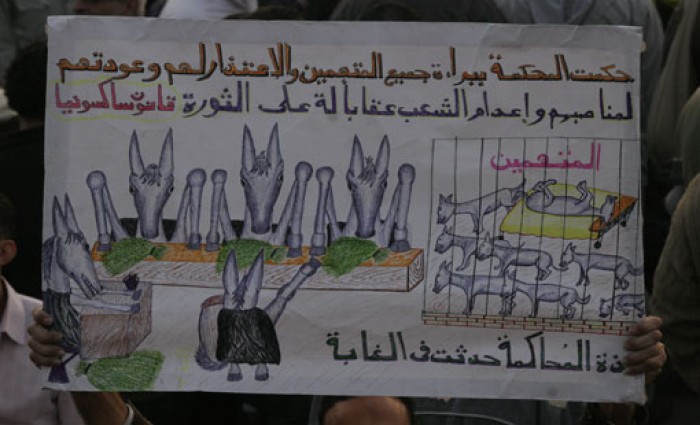 حكمت المحكمة ببراءة جميع المتهمين والاعتذار لهم وعودتهم
لمناصبهم وإعدام الشعب عقاباً له على الثورة قانوساكسونيا
المتهمين
المحاكمة حدثت فى الغابة